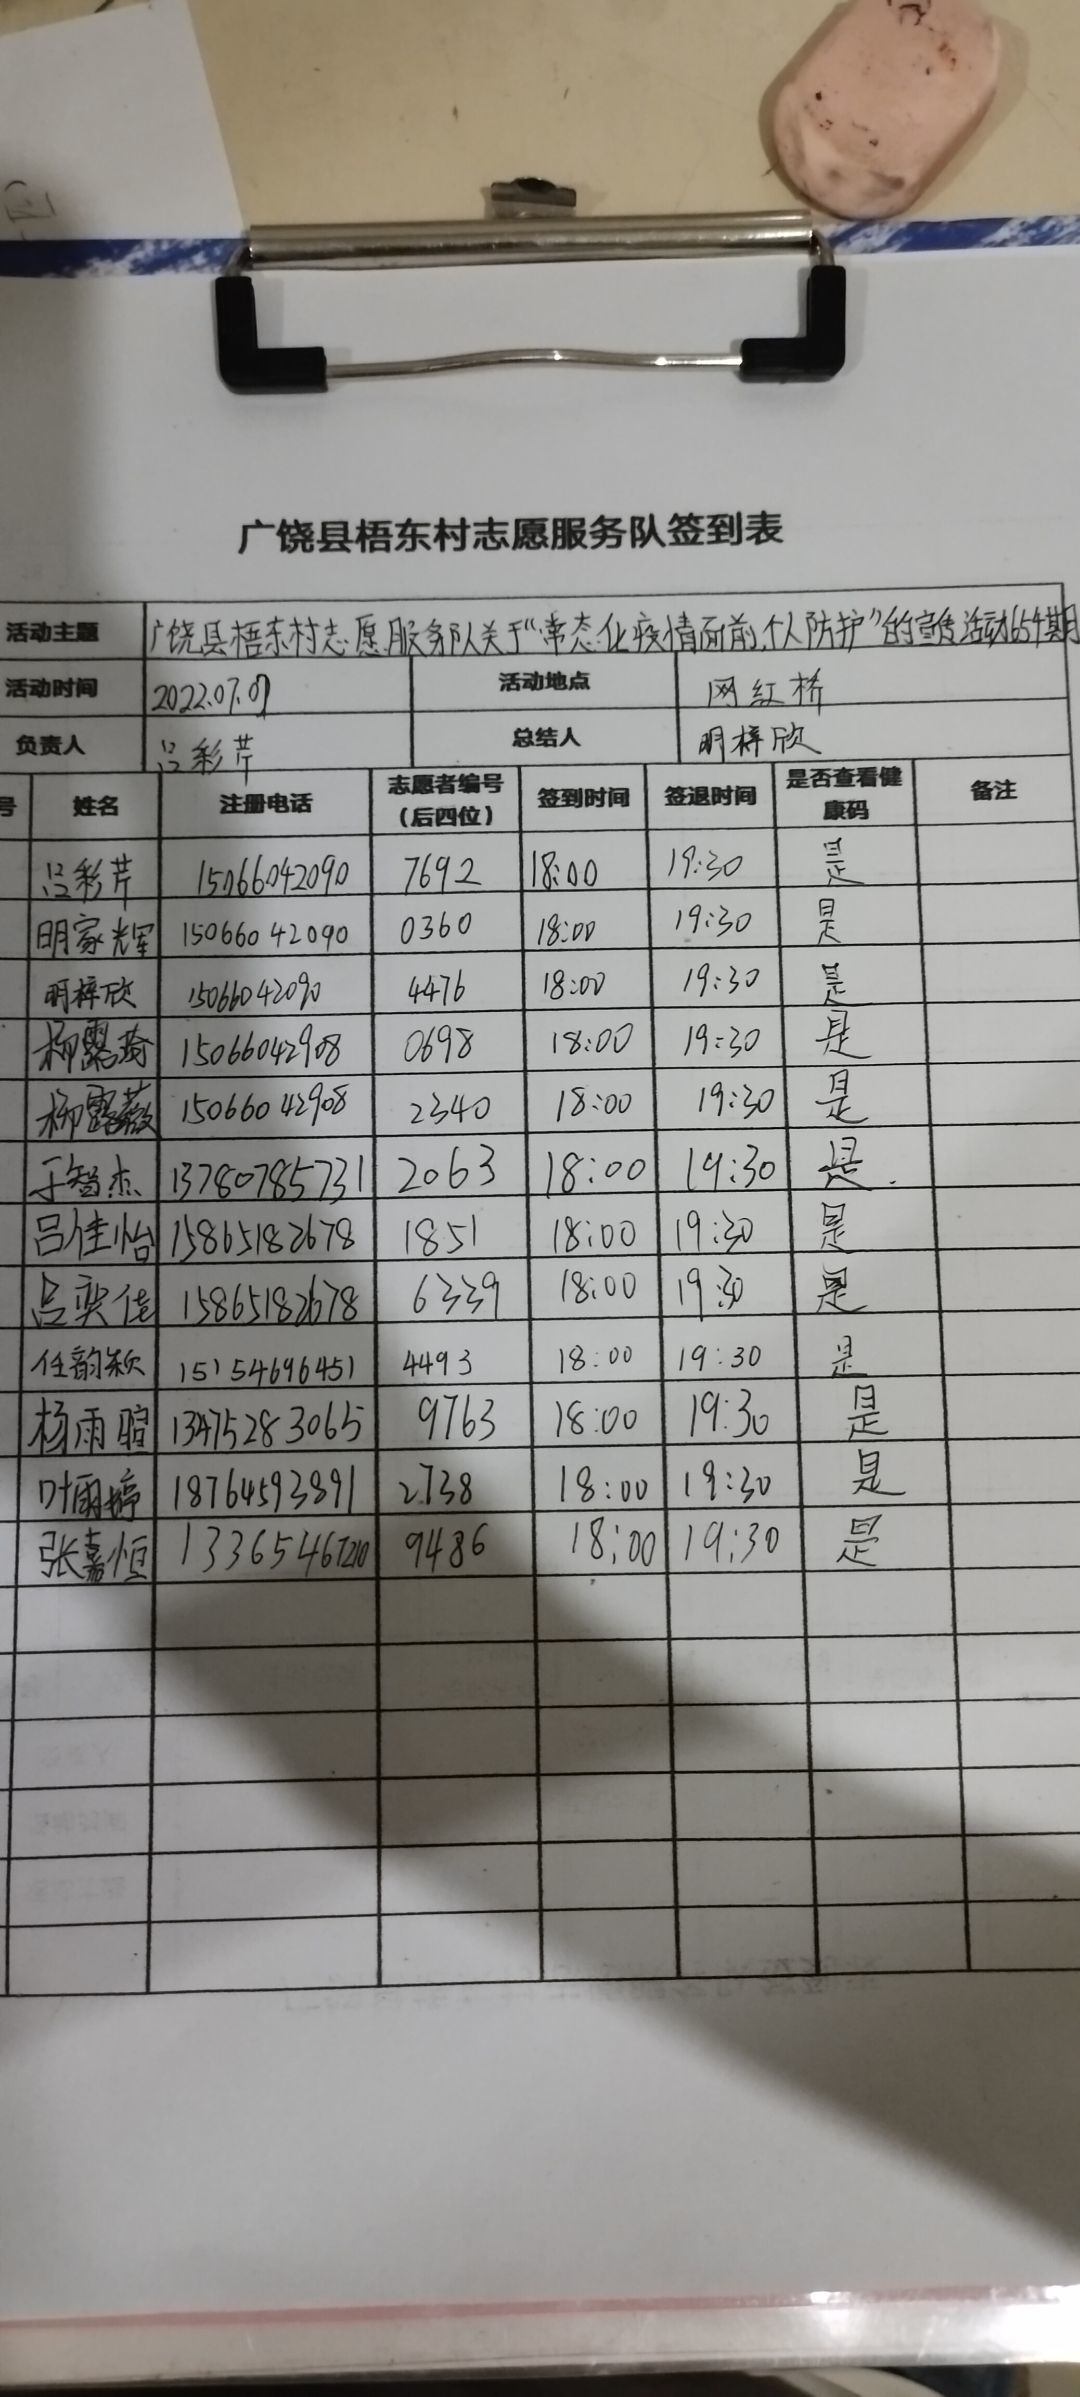 广饶县梧东村志愿服务队签到表
活动主题 广饶县梧东村志愿服务队关于“常态化疫情面前,个人防护”的宣传活动654期
活动时间 2022.07.07 活动地点 网红桥
负责人 吕彩芹 总结人 明梓欣
号 姓名 注册电话 志愿者编号（后四位） 签到时间 签退时间 是否查看健康码 备注
吕彩芹 15066042090 7692 18:00 19:30 是
明家辉 15066042090 0360 18:00 19:30 是
明梓欣 15066042090 4476 18:00 19:30 是
柳露琦 15066042908 0698 18:00 19:30 是
柳露薇 15066042908 2340 18:00 19:30 是
于智杰 13780785731 2063 18:00 19:30 是
吕佳怡 15865182678 1851 18:00 19:30 是
吕奕佳 15865182678 6339 18:00 19:30 是
任韵颖 15154696451 4493 18:00 19:30 是
杨雨暄 13475283065 9763 18:00 19:30 是
叶雨婷 18764593891 2738 18:00 19:30 是
张嘉恒 13365467210 9486 18:00 19:30 是